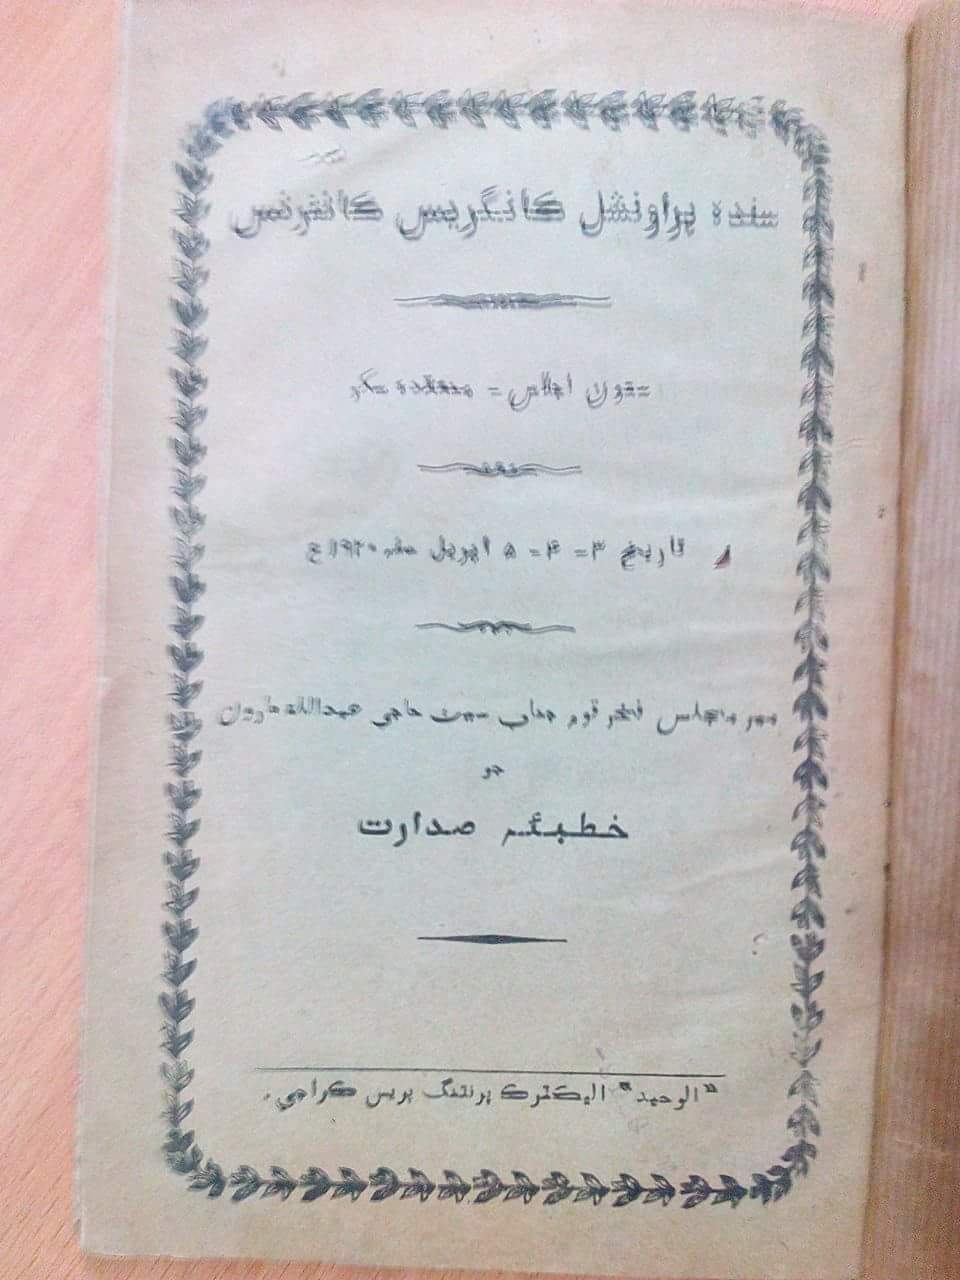 سنڌه پراونشل ڪانگريس ڪانفرنس
ستون اجلاس = منعقده سکر
تاريخ ۳ = ۴ = ۵ اپريل سنه ۱۹۲۰ع
مير مجلس فخر قوم جناب سيٺ حاجي عبدالله هارون
جو
خطبئہ صدارت
"الوحيد" اليڪٽرڪ پرنٽنگ پريس ڪراچي.